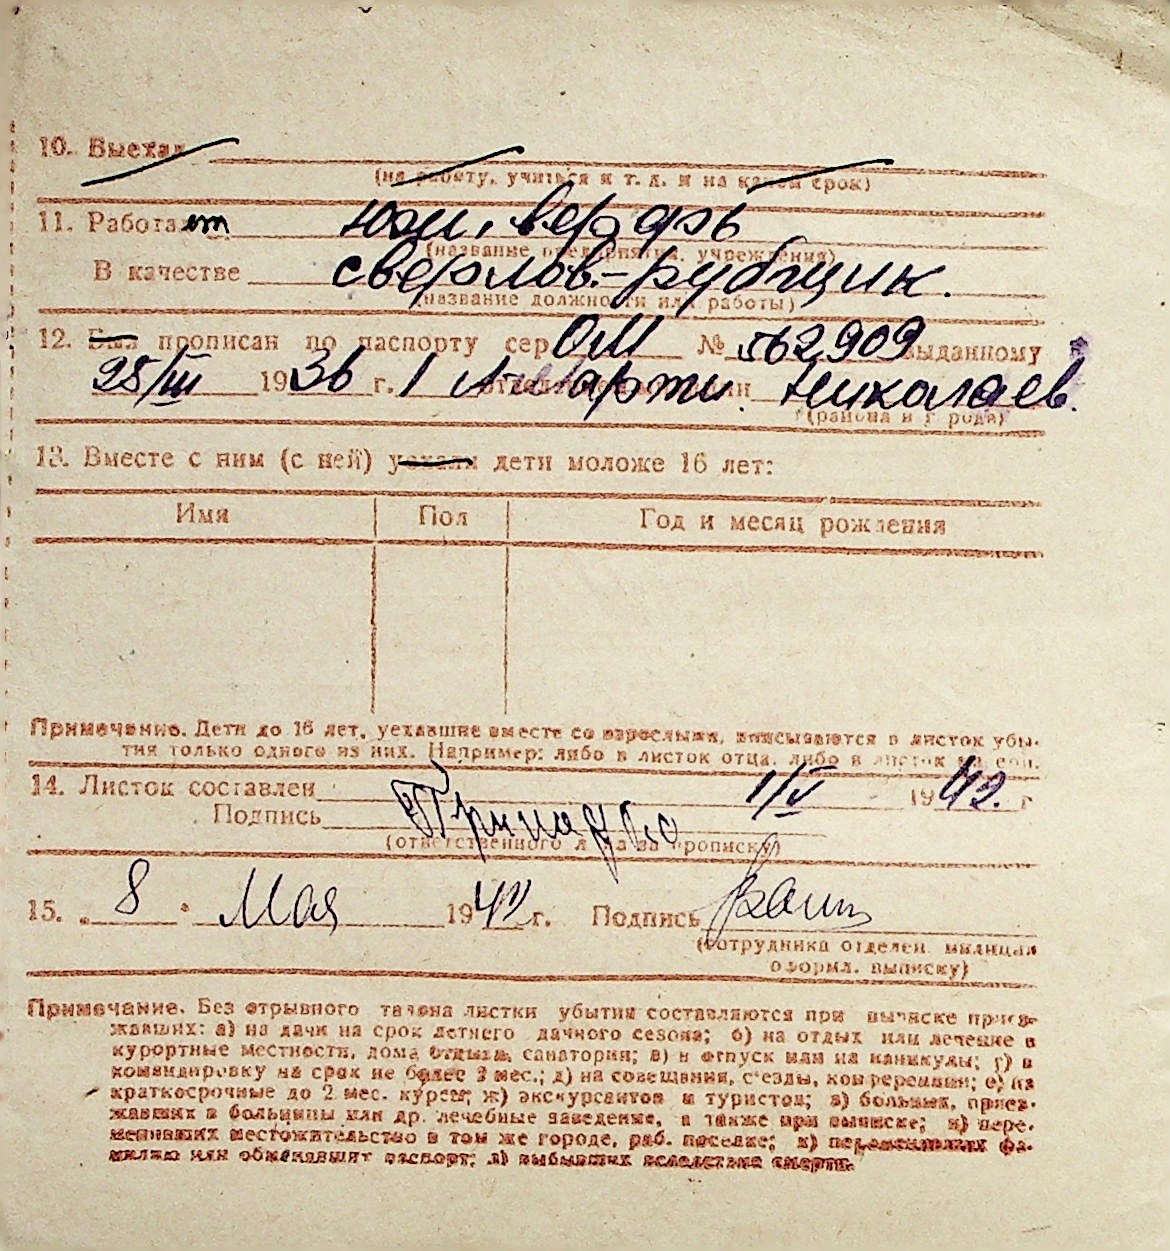 10. Выехал
(на работу, учиться и т. д. и на какой срок)
11. Работает Южн. верфь
(название предприятия, учреждения)
В качестве сверлов.-рубщик.
(название должности или работы)
12. Был прописан по паспорту сер ОМ № 562909 выданному
25/III 1936 г. 1 отделением милиции Николаев.
(района и города)
13. Вместе с ним (с ней) уехали дети моложе 16 лет:
Имя Пол Год и месяц рождения
Примечание. Дети до 16 лет, уехавшие вместе со взрослыми, вписываются в листок убы-
тия только одного из них. Например: либо в листок отца, либо в листок матери.
14. Листок составлен 1/V 1942. г
Подпись
(ответственного лица за прописку)
15. „ 8 " Мая 194 г. Подпись
(сотрудника отделен. милиции
оформл. выписку)
Примечание. Без отрывного талона листки убытия составляются при выписке приез-
жавших: а) на дачи на срок летнего дачного сезона; б) на отдых или лечение в
курортные местности, дома отдыха, санатории; в) в отпуск или на каникулы; г) в
командировку на срок не более 2 мес.; д) на совещания, с'езды, конференции; е) на
краткосрочные до 2 мес. курсы; ж) экскурсантов и туристов; з) больных, приез-
жавших в больницы или др. лечебные заведение, а также при выписке; и) пере-
менивших местожительство в том же городе, раб. поселке; к) переменивших фа-
милию или обменявших паспорт; л) выбывших вследствие смерти.